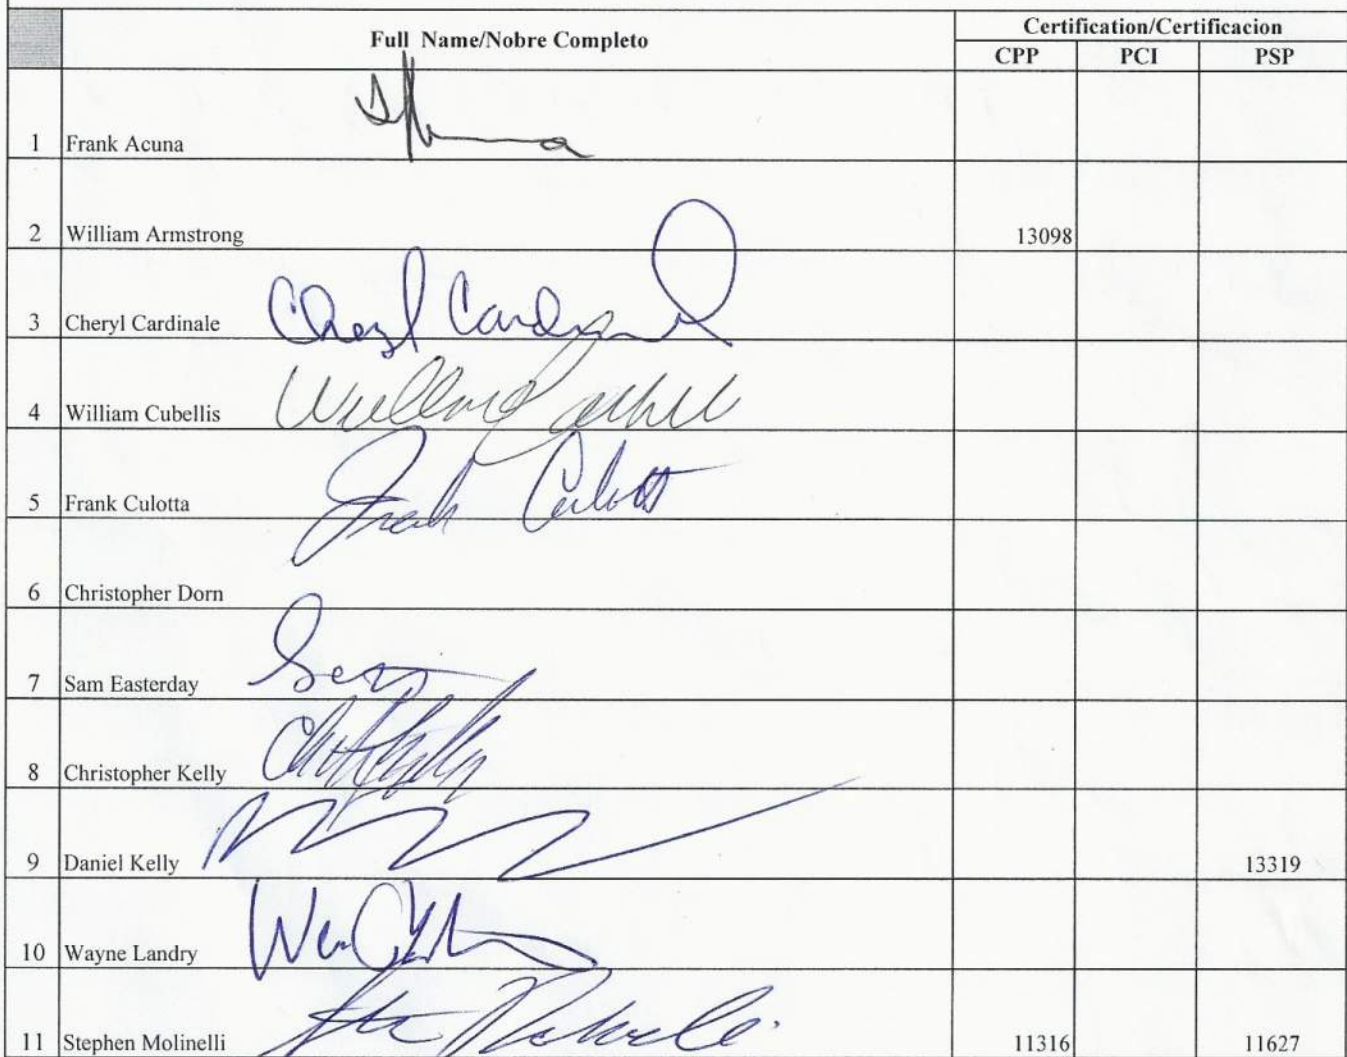 Full Name/Nobre Completo Certification/Certificacion
CPP PCI PSP
1 Frank Acuna
2 William Armstrong 13098
3 Cheryl Cardinale Cheryl Cardinale
4 William Cubellis William
5 Frank Culotta Frank Culotta
6 Christopher Dorn
7 Sam Easterday
8 Christopher Kelly
9 Daniel Kelly 13319
10 Wayne Landry
11 Stephen Molinelli 11316 11627